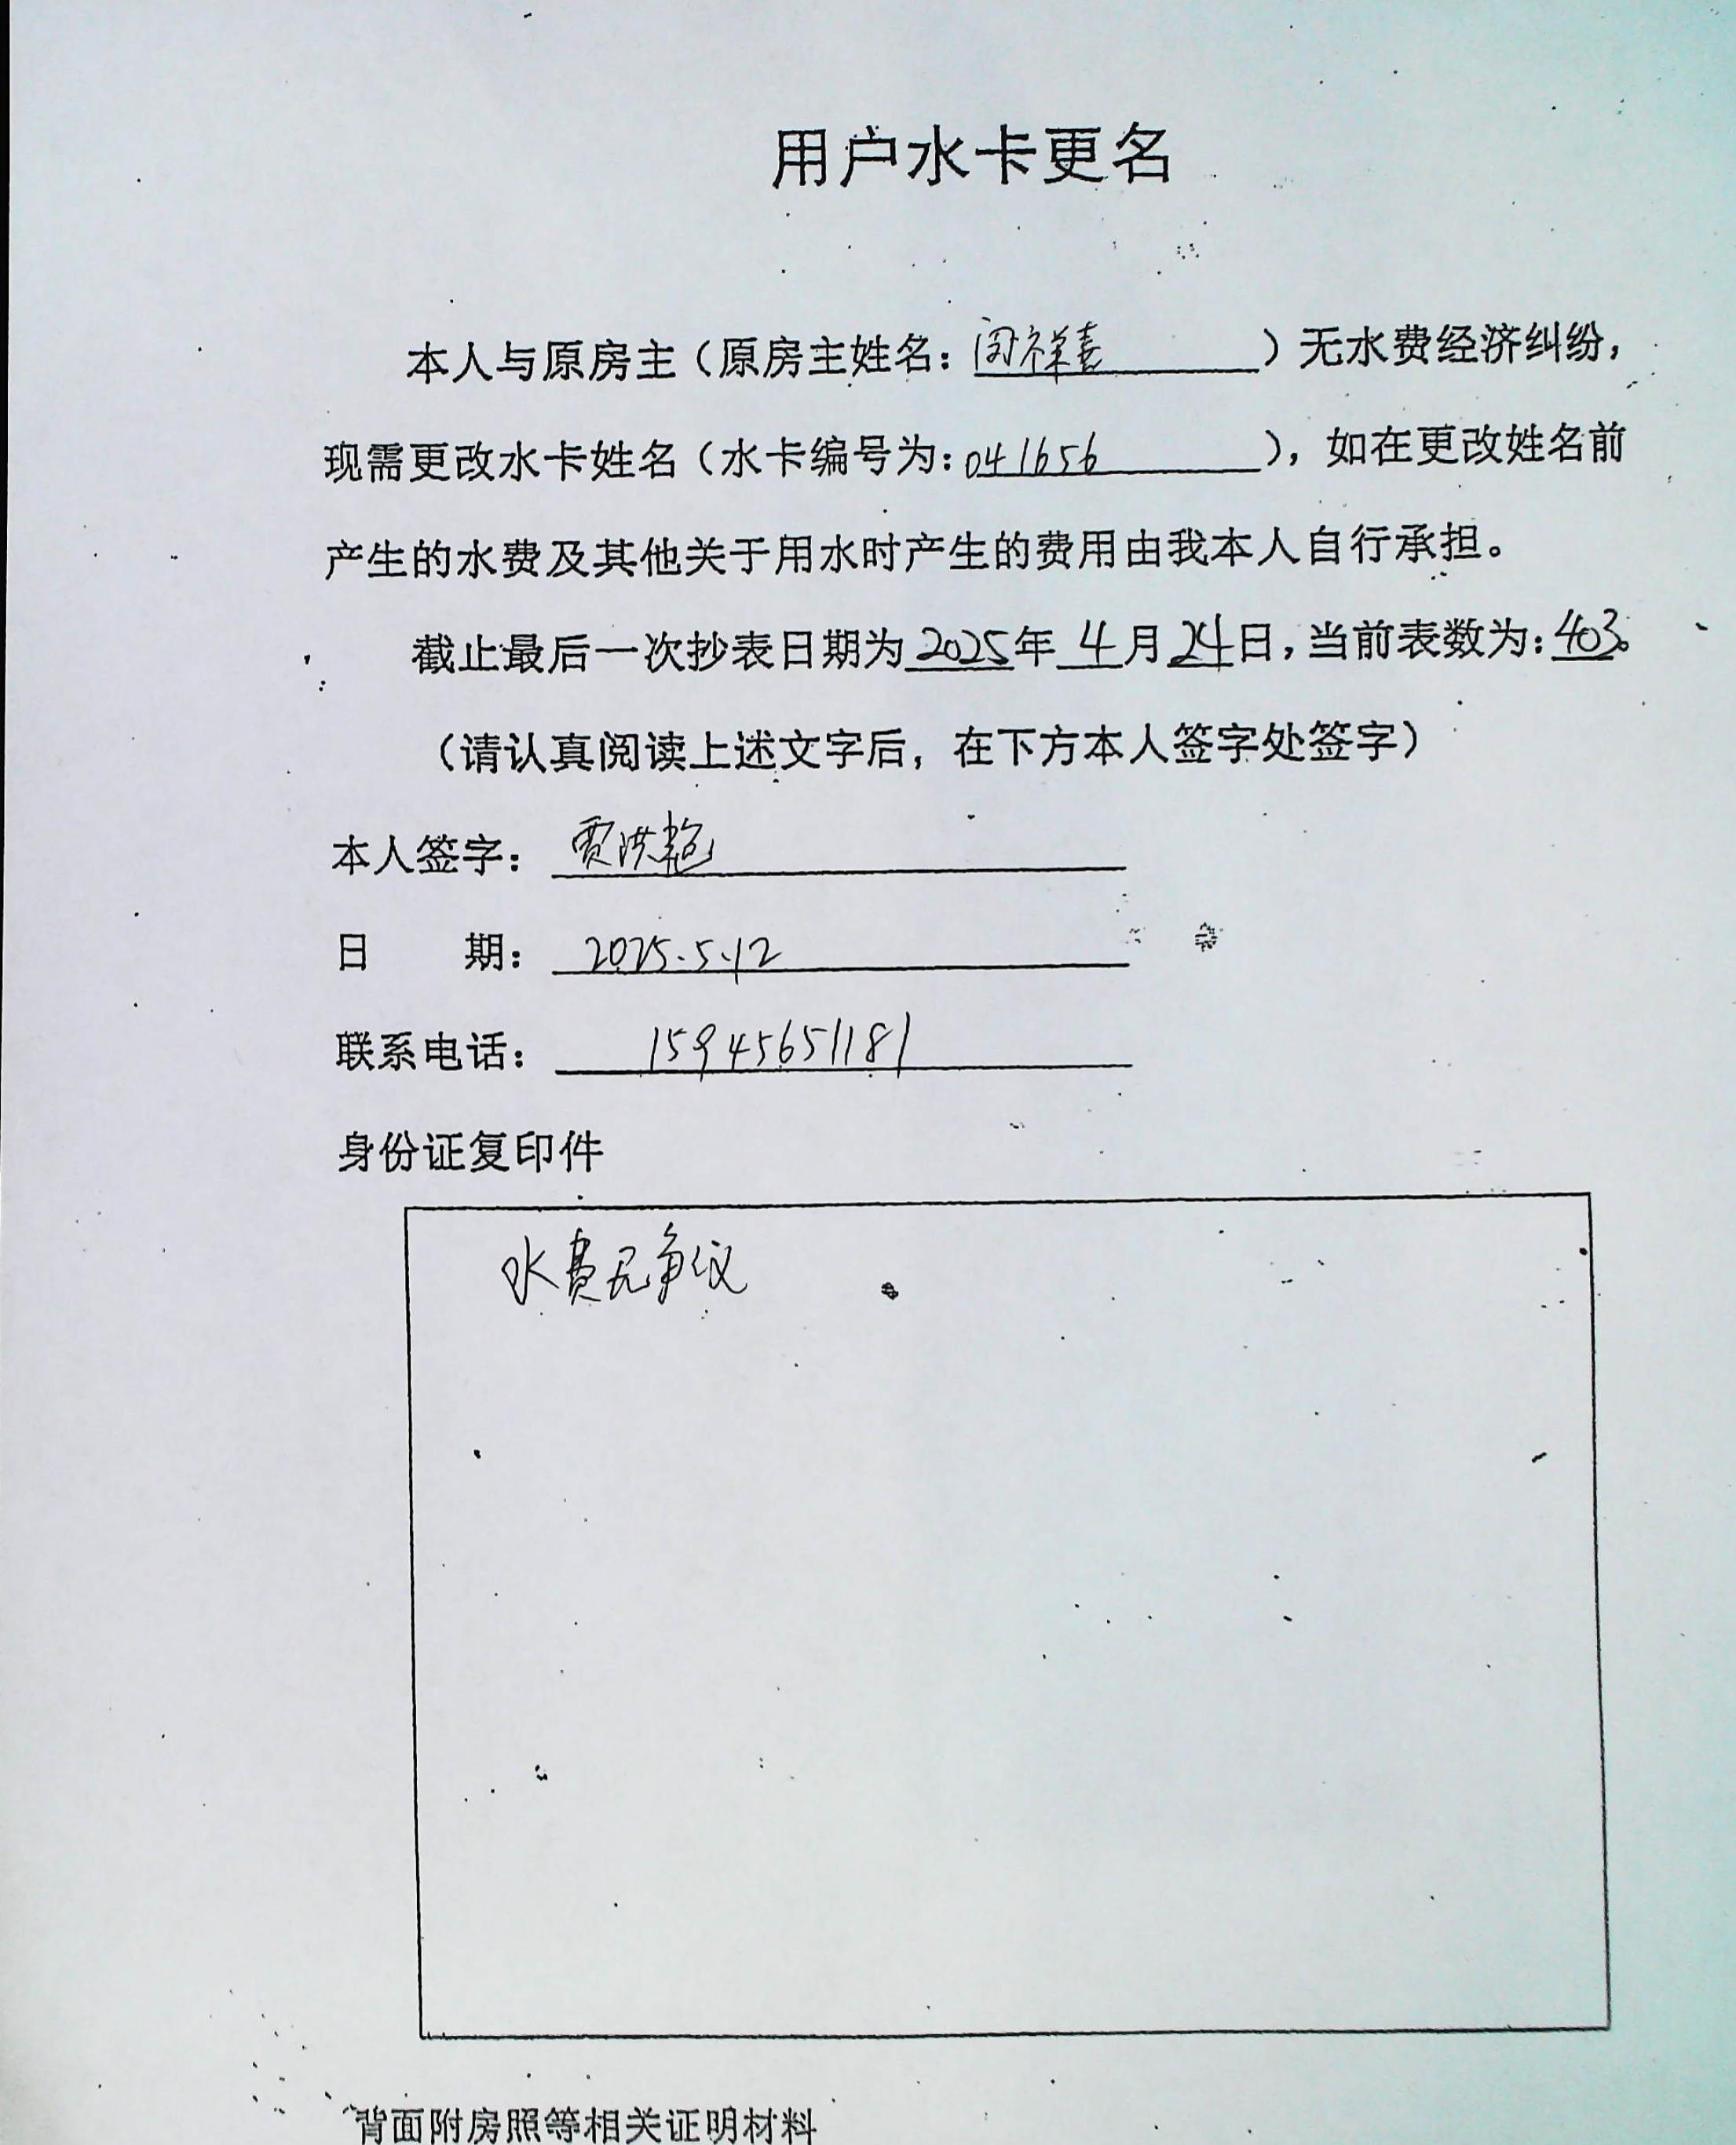 用户水卡更名
本人与原房主（原房主姓名：闵祥喜）无水费经济纠纷，
现需更改水卡姓名（水卡编号为：041656），如在更改姓名前
产生的水费及其他关于用水时产生的费用由我本人自行承担。
截止最后一次抄表日期为2025年4月24日，当前表数为：403。
（请认真阅读上述文字后，在下方本人签字处签字）
本人签字：贾洪艳
日 期：2025.5.12
联系电话：15945651181
身份证复印件
水费无争议
背面附房照等相关证明材料